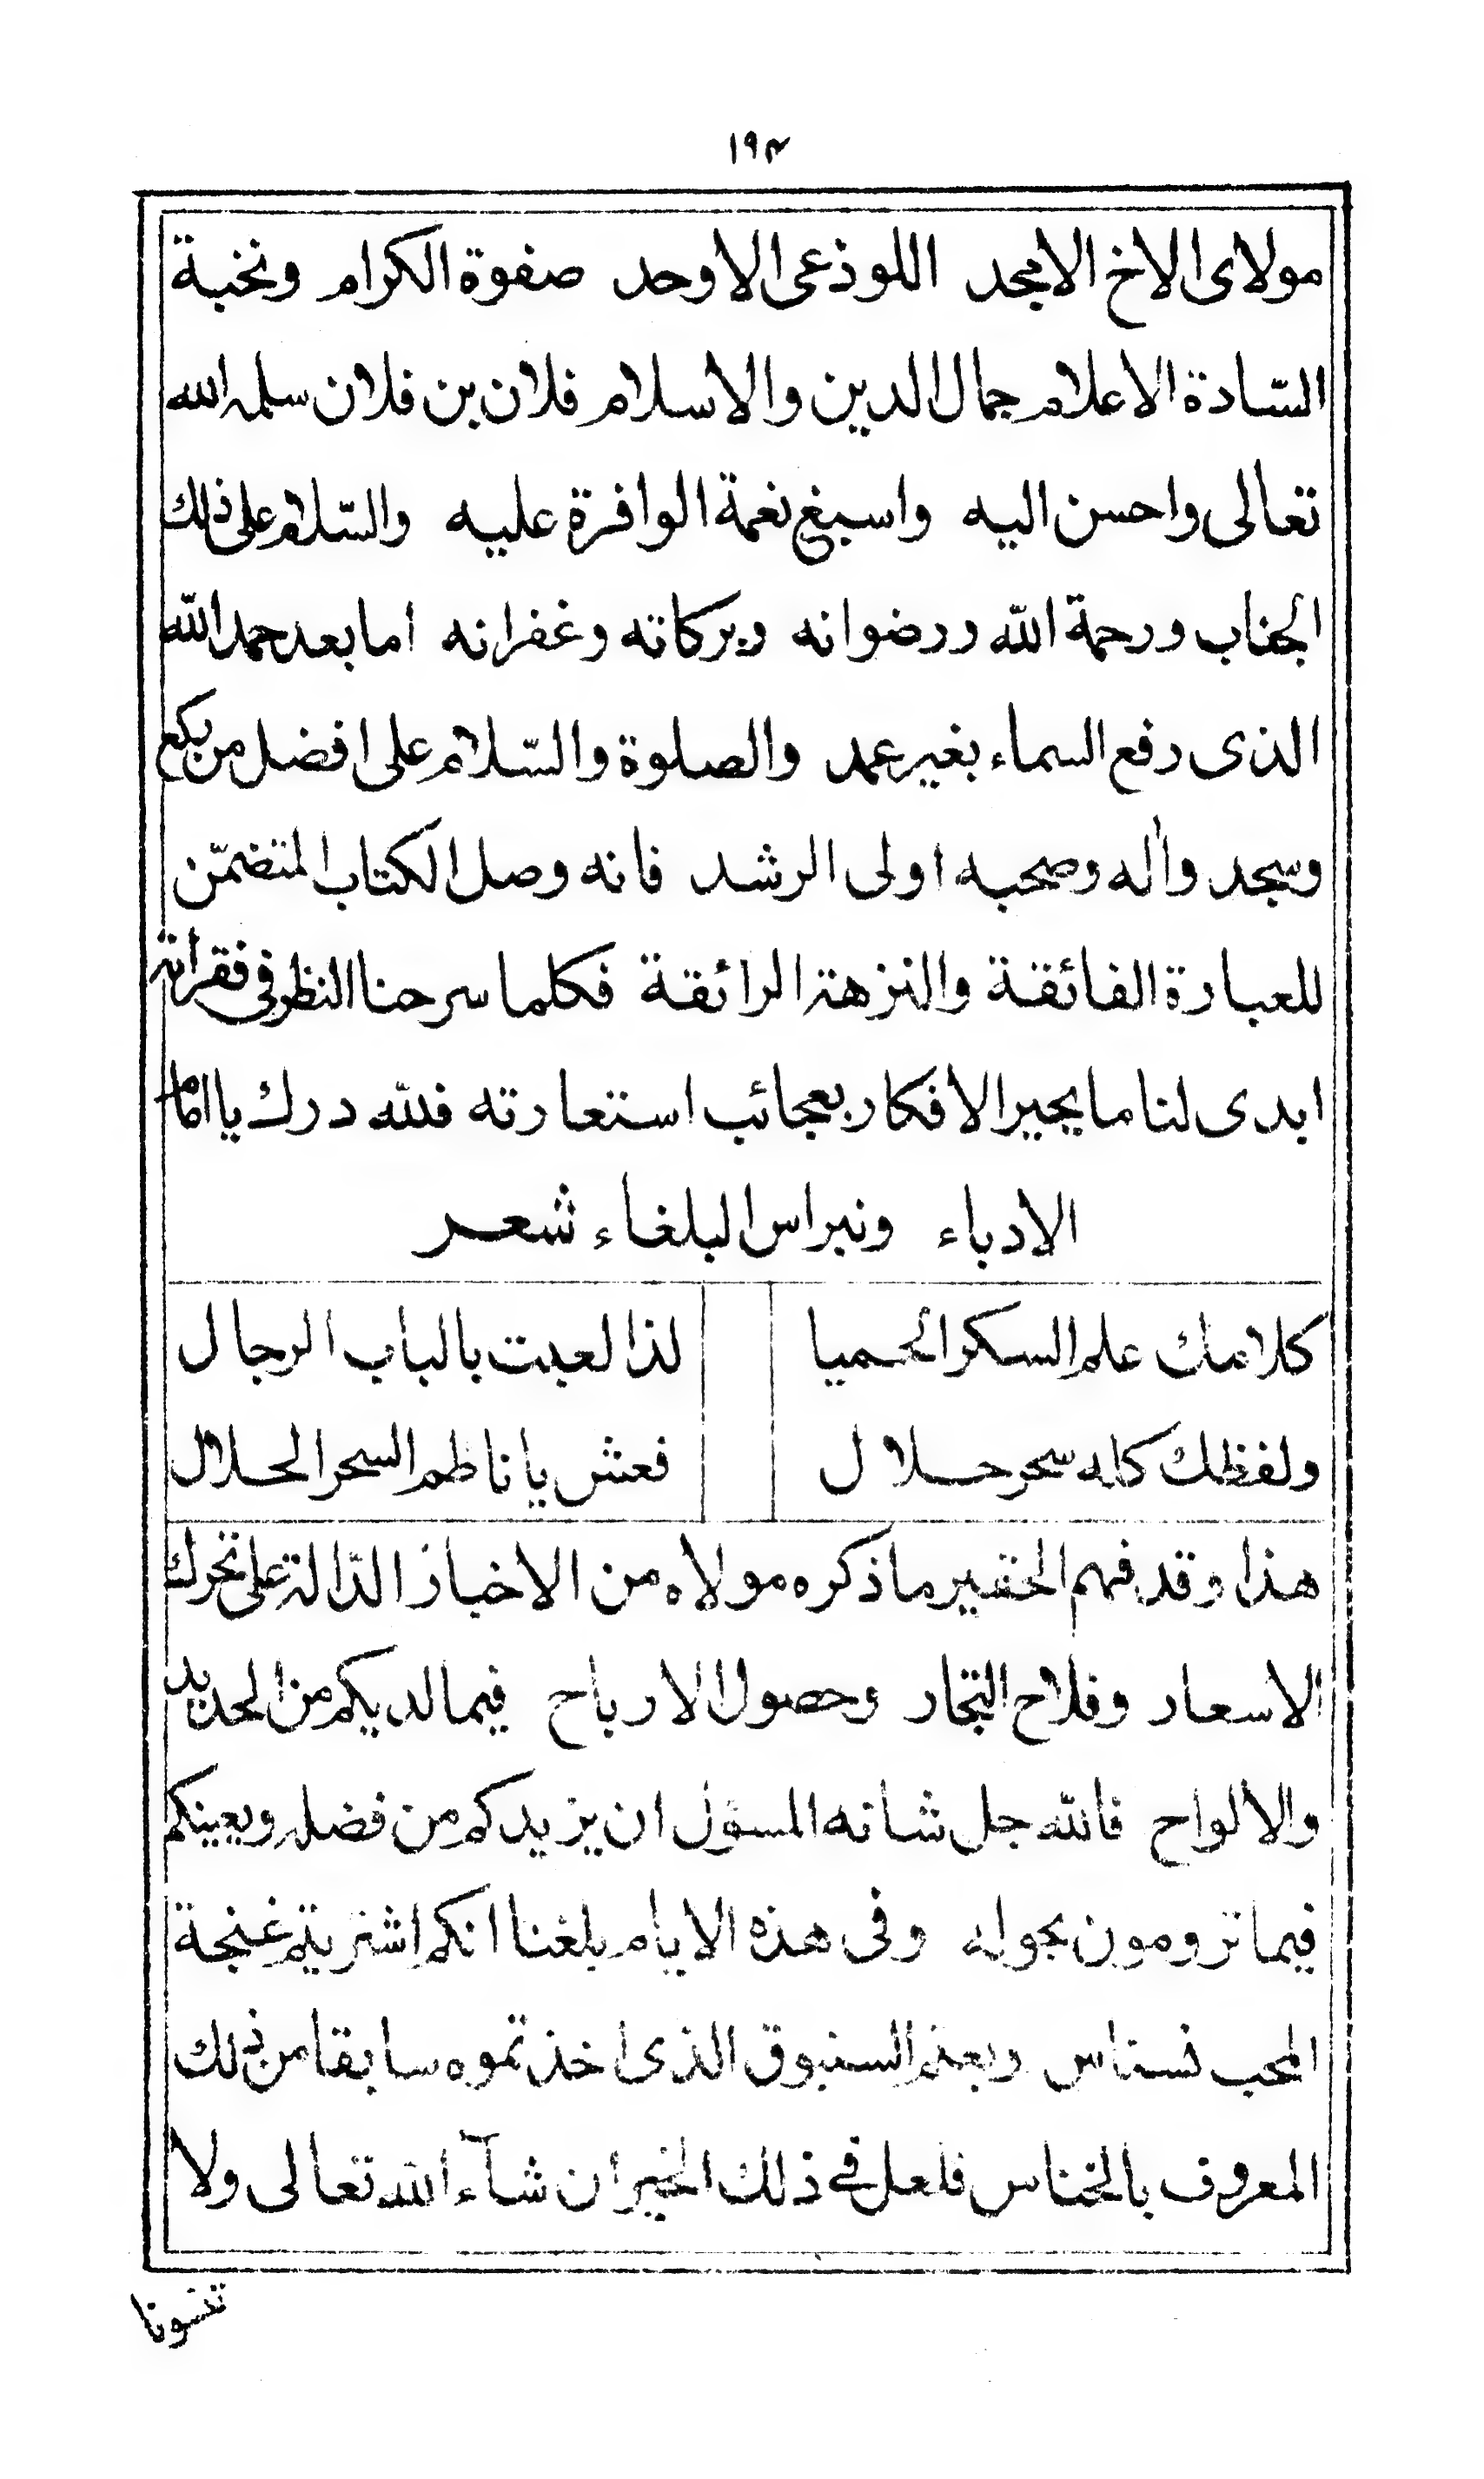 ١٩٣
مولاى الاخ الامجد اللوذعى الاوحد صفوة الكرام ونخبة
السّادة الاعلام جمال الدين والاسلام فلان بن فلان سلمه الله
تعالى واحسن اليه واسبغ نعمة الوافرة عليه والسّلام على ذلك
الجناب ورحمة اللّه ورضوانه وبركاته وغفرانه اما بعد حمد اللّه
الذى رفع السماء بغير عمد والصلوة والسّلام على افضل من ركع
وسجد واٰله وصحبه اولى الرشد فانه وصل الكتاب المتضمّن
للعبارة الفائقة والنزهة الرائقة فكلما سرحنا النظر فى فقراته
ابدى لنا ما يحير الافكار بعجائب استعارته فللّه درك يا امام
الادباء ونبراس البلغاء شعر
كلامك علم السكر الحميا لذا لعبت بالباب الرجال
ولفظك كله سحر حلال فعش يا ناظم السحر الحلال
هذا وقد فهم الحقير ما ذكره مولاه من الاخبار الدّالة على تحرك
الاسعار وفلاح التجار وحصول الارباح فيما لديكم من الحديد
والالواح فاللّه جل شانه المسؤل ان يزيدكم من فضله ويعينكم
فيما ترومون بحوله وفى هذه الايام بلغنا انكم اشتريتم غنجة
المحب نسناس وبعتم السنبوق الذى اخذتموه سابقا من ذلك
المعروف بالخناس فلعل فى ذلك الخير ان شآء الله تعالى ولا
تنسونا